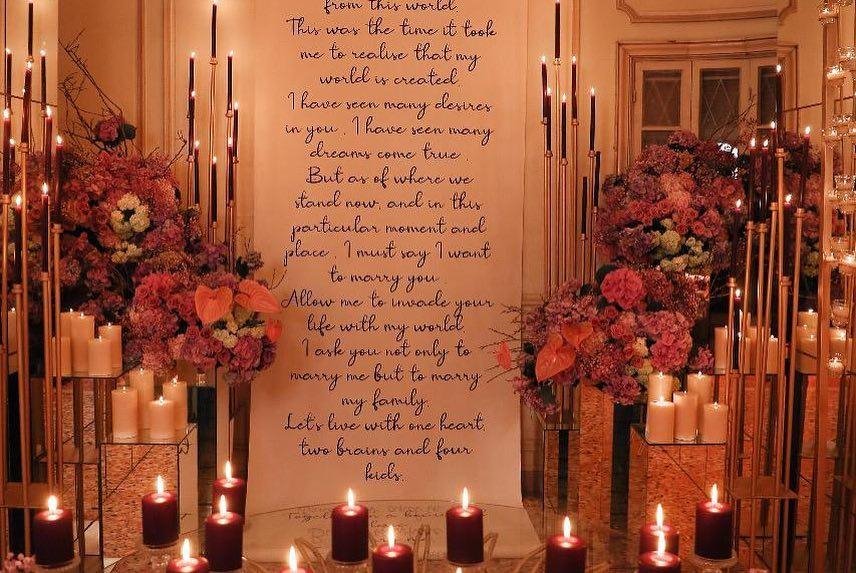 from this world.
This was the time it took
me to realise that my
world is created.
I have seen many desires
in you , I have seen many
dreams come true .
But as of where we
stand now, and in this
particular moment and
place , I must say I want
to marry you
Allow me to invade your
life with my world.
I ask you not only to
marry me but to marry
my family.
Let's live with one heart,
two brains and four
kids.